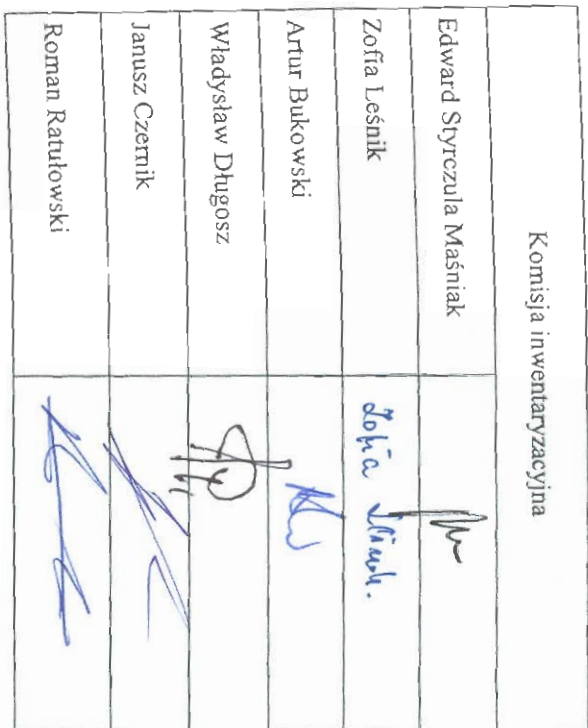 Komisja inwentaryzacyjna
Edward Styrczula Maśniak
Zofia Leśnik Zofia Leśnik.
Artur Bukowski
Władysław Długosz
Janusz Czernik
Roman Ratułowski